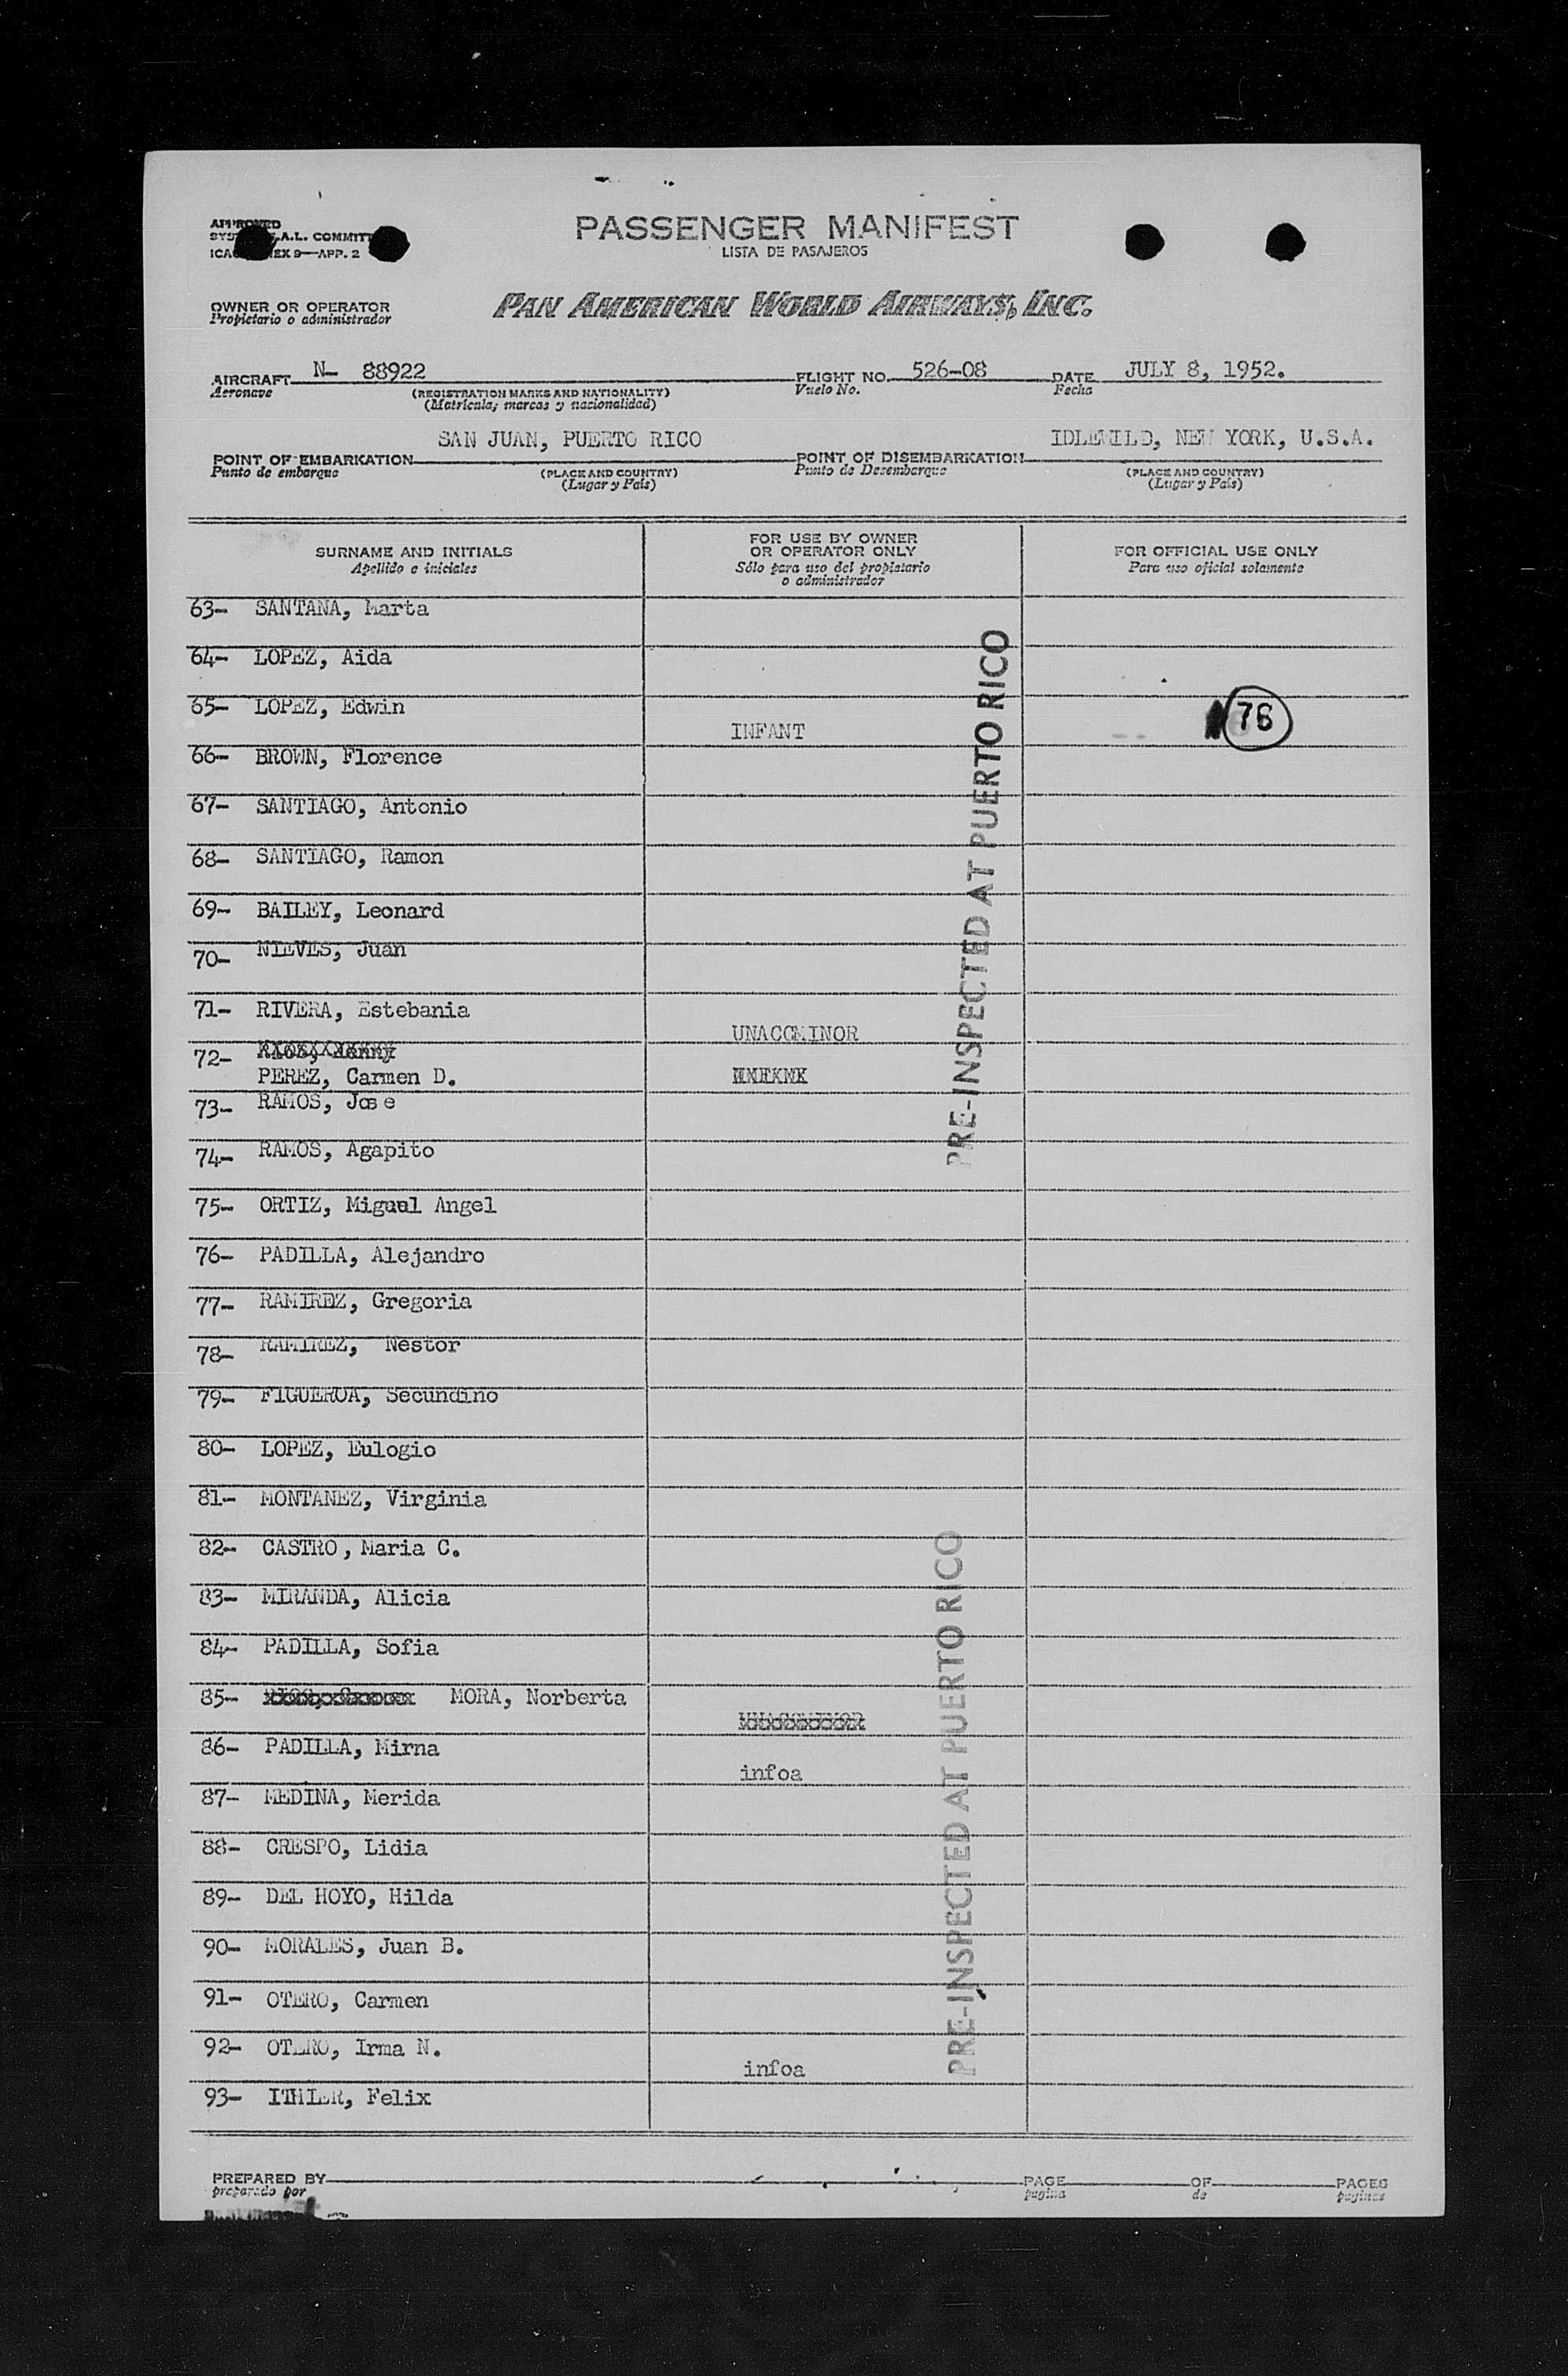 APPROVED
PASSENGER MANIFEST
A.L. COMMITT
LISTA DE PASAJEROS
ICA EX 9—APP. 2
OWNER OR OPERATOR
Propietario o administrador
PAN AMERICAN WORLD AIRWAYS, INC.
AIRCRAFT N- 88922 FLIGHT NO. 526-08 DATE JULY 8, 1952.
Aeronave (REGISTRATION MARKS AND NATIONALITY) Vuelo No. Fecha
(Matrícula; marcas y nacionalidad)
SAN JUAN, PUERTO RICO IDLEWILD, NEW YORK, U.S.A.
POINT OF EMBARKATION POINT OF DISEMBARKATION
Punto de embarque (PLACE AND COUNTRY) Punto de Desembarque (PLACE AND COUNTRY)
(Lugar y País) (Lugar y País)
SURNAME AND INITIALS
Apellido e iniciales
FOR USE BY OWNER
OR OPERATOR ONLY
Sólo para uso del propietario
o administrador
FOR OFFICIAL USE ONLY
Para uso oficial solamente
63- SANTANA, Marta
64- LOPEZ, Aida
65- LOPEZ, Edwin
INFANT
76
66- BROWN, Florence
67- SANTIAGO, Antonio
68- SANTIAGO, Ramon
69- BAILEY, Leonard
70- NIEVES, Juan
71- RIVERA, Estebania
UNACCMINOR
72-
PEREZ, Carmen D.
73- RAMOS, Jose
74- RAMOS, Agapito
75- ORTIZ, Miguel Angel
76- PADILLA, Alejandro
77- RAMIREZ, Gregoria
78- RAMIREZ, Nestor
79- FIGUEROA, Secundino
80- LOPEZ, Eulogio
81- MONTANEZ, Virginia
82- CASTRO, Maria C.
83- MIRANDA, Alicia
84- PADILLA, Sofia
85- MORA, Norberta
86- PADILLA, Mirna
infoa
87- MEDINA, Merida
88- CRESPO, Lidia
89- DEL HOYO, Hilda
90- MORALES, Juan B.
91- OTERO, Carmen
92- OTERO, Irma N.
infoa
93- ITHIER, Felix
PRE-INSPECTED AT PUERTO RICO
PRE-INSPECTED AT PUERTO RICO
PREPARED BY PAGE OF PAGES
preparado por pagina de paginas